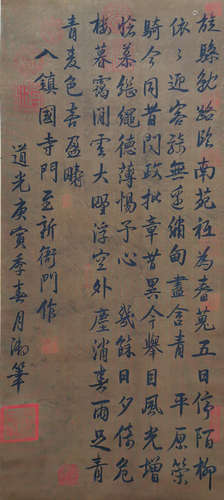 路臨南苑祇為春蒐五日停陌柳
依〻迎客無邊繡甸盡含青 平原策
騎今同昔閱政批章昔異今舉目風光增
愴慕繼繩德薄惕予心 幾餘日夕倚危
樓暮靄雲大野浮空外塵消雨足青
青麥色喜盈疇
入鎮國寺門至新衙門作
道光庚寅季春月御筆